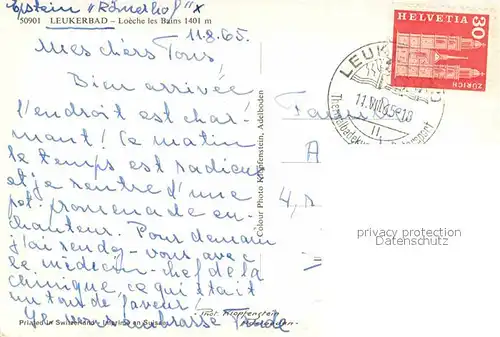 Epstein "Römerhof" x
50901 LEUKERBAD – Loèche les Bains 1401 m
11.8.65.
Mes chers Tous,
Bien arrivée
l'endroit est char-
mant! Ce matin
le temps est radieux
et je rentre d'une
pet. promenade en-
chanteur. Pour demain
j'ai rendez-vous avec
le médecin-chef de la
clinique, ce qui était
un tour de faveur!
Je vous embrasse
Printed in Switzerland - Imprimé en Suisse
Phot. Klopfenstein
Adelboden
Colour Photo Klopfenstein, Adelboden
HELVETIA
30
ZÜRICH
LEUK
11.VIII.65
privacy protection
A
4,